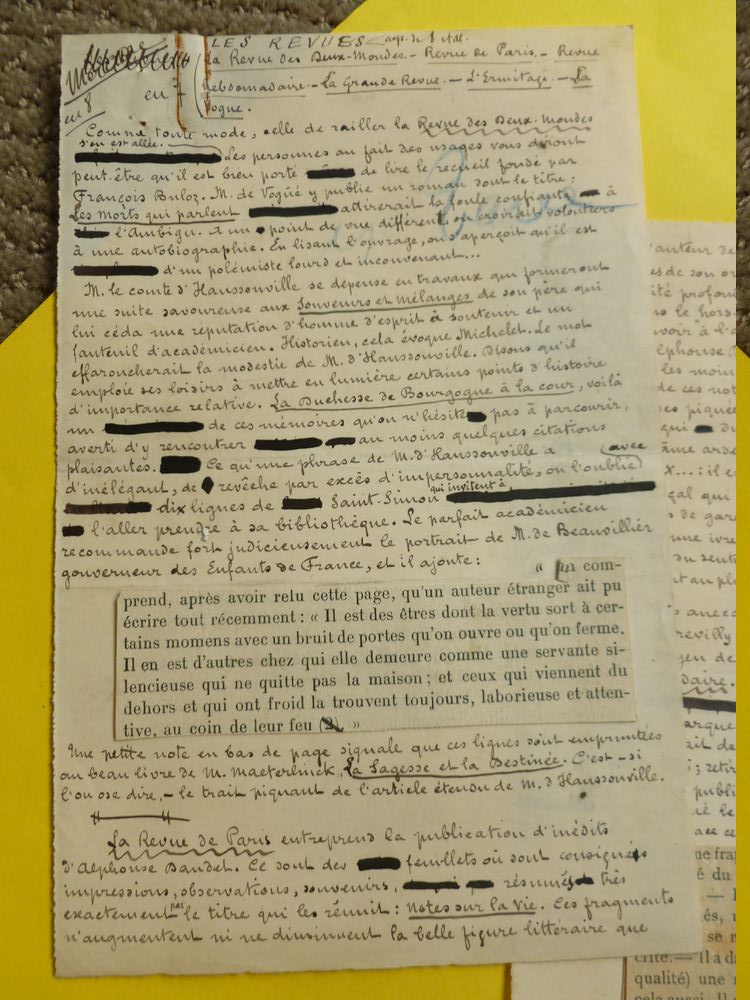 LES REVUES
Mercure
en 8
en 7
La Revue des Deux-Mondes - Revue de Paris. - Revue
hebdomadaire. - La Grande Revue. - L'Ermitage. - La
Vogue.
Comme toute mode, celle de railler la Revue des Deux-Mondes
s'en est allée.
Les personnes au fait des usages vous diront
peut-être qu'il est bien porté de lire le recueil fondé par
François Buloz. M. de Vogüé y publie un roman dont le titre:
Les Morts qui parlent attirerait la foule confiante à
l'Ambigu. A un point de vue différent, on croirait volontiers
à une autobiographie. En lisant l'ouvrage, on s'aperçoit qu'il est
d'un polémiste lourd et inconvenant...
M. le comte d'Haussonville se dépense en travaux qui formeront
une suite savoureuse aux Souvenirs et Mélanges de son père qui
lui céda une réputation d'homme d'esprit à soutenir et un
fauteuil d'académicien. Historien, cela évoque Michelet. Le mot
effaroucherait la modestie de M. d'Haussonville. Disons qu'il
emploie ses loisirs à mettre en lumière certains points d'histoire
d'importance relative. La Duchesse de Bourgogne à la cour, voilà
un de ces mémoires qu'on n'hésite pas à parcourir,
averti d'y rencontrer au moins quelques citations
plaisantes. Ce qu'une phrase de M. d'Haussonville a
d'inélégant, de revêche par excès d'impersonnalité, on l'oublie (avec
dix lignes de Saint-Simon qui invitent à
l'aller prendre à sa bibliothèque. Le parfait académicien
recommande fort judicieusement le portrait de M. de Beauvillier
gouverneur des Enfants de France, et il ajoute:
« On com-
prend, après avoir relu cette page, qu'un auteur étranger ait pu
écrire tout récemment : « Il est des êtres dont la vertu sort à cer-
tains momens avec un bruit de portes qu'on ouvre ou qu'on ferme.
Il en est d'autres chez qui elle demeure comme une servante si-
lencieuse qui ne quitte pas la maison ; et ceux qui viennent du
dehors et qui ont froid la trouvent toujours, laborieuse et atten-
tive, au coin de leur feu (2). »
Une petite note en bas de page signale que ces lignes sont empruntées
au beau livre de M. Maeterlinck, La Sagesse et la Destinée. C'est - si
l'on ose dire, - le trait piquant de l'article étendu de M. d'Haussonville.
La Revue de Paris entreprend la publication d'inédits
d'Alphonse Daudet. Ce sont des feuillets où sont consignés
impressions, observations, souvenirs, résumés très
exactement par le titre qui les réunit : Notes sur la Vie. Ces fragments
n'augmentent ni ne diminuent la belle figure littéraire que